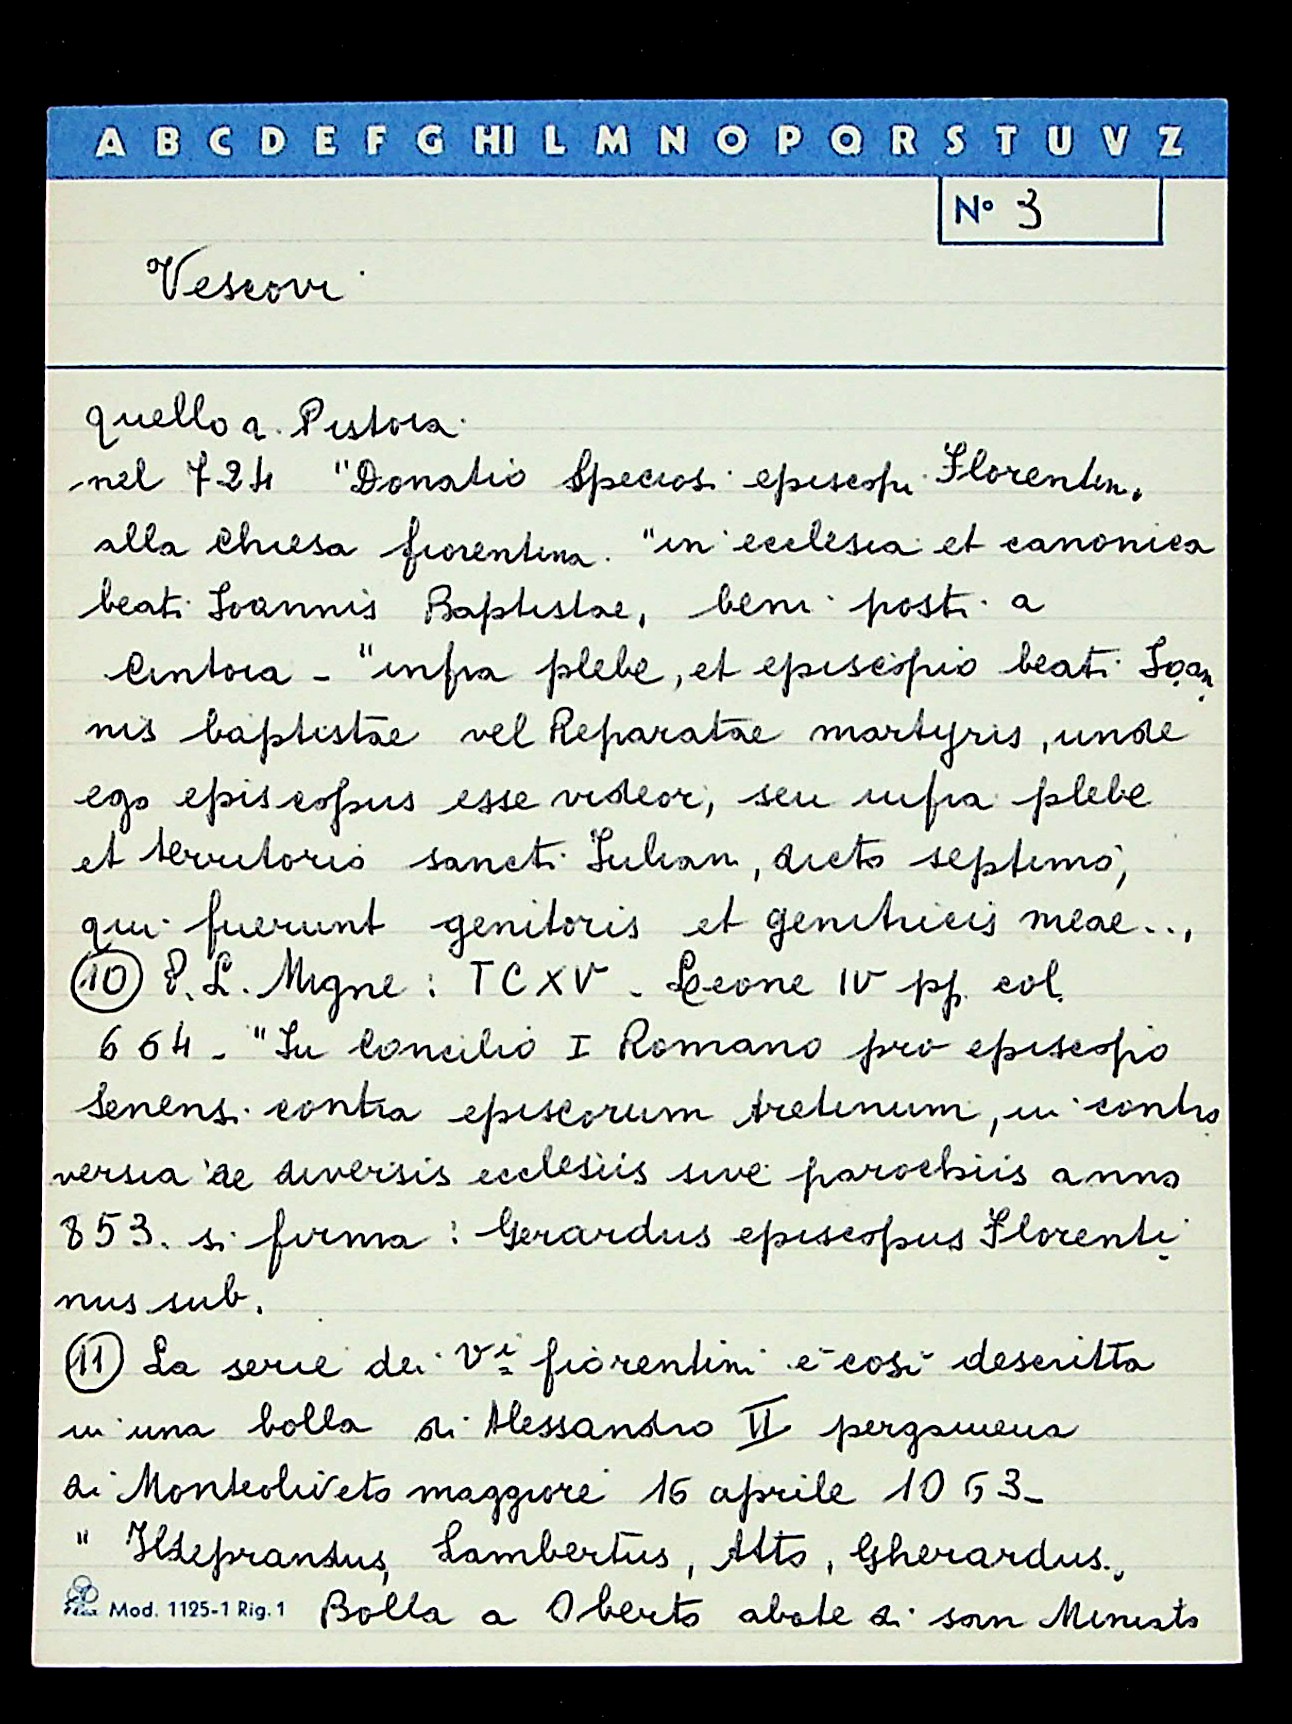 A B C D E F G HI L M N O P Q R S T U V Z
N° 3
Vescovi
quello a. Pistoia.
nel 724 "Donatio Speciosi episcopi Florentin.
alla chiesa fiorentina. "in ecclesia et canonica
beati Ioannis Baptistae, beni posti a
Cintoia - "infra plebe, et episcopio beati Ioan
nis baptistae vel Reparatae martyris, unde
ego episcopus esse videor, seu infra plebe
et territorio sancti Iulian, dicto septimo,
qui fuerunt genitoris et genitricis meae..,
10 P. L. Migne: TCXV - Leone IV pp. col.
664 - "In Concilio I Romano pro episcopio
Senensi contra episcorum Aretinum, in contro
versia de diversis ecclesiis sive parochiis anno
853. si firma: Gerardus episcopus Florenti
nus sub.
11 La serie dei Vi fiorentini è così descritta
in una bolla di Alessandro II pergamena
di Monteoliveto maggiore 16 aprile 1063-
" Ildeprandus, Lambertus, Atto, Gherardus.,
Mod. 1125-1 Rig. 1 Bolla a Oberto abate di san Miniato